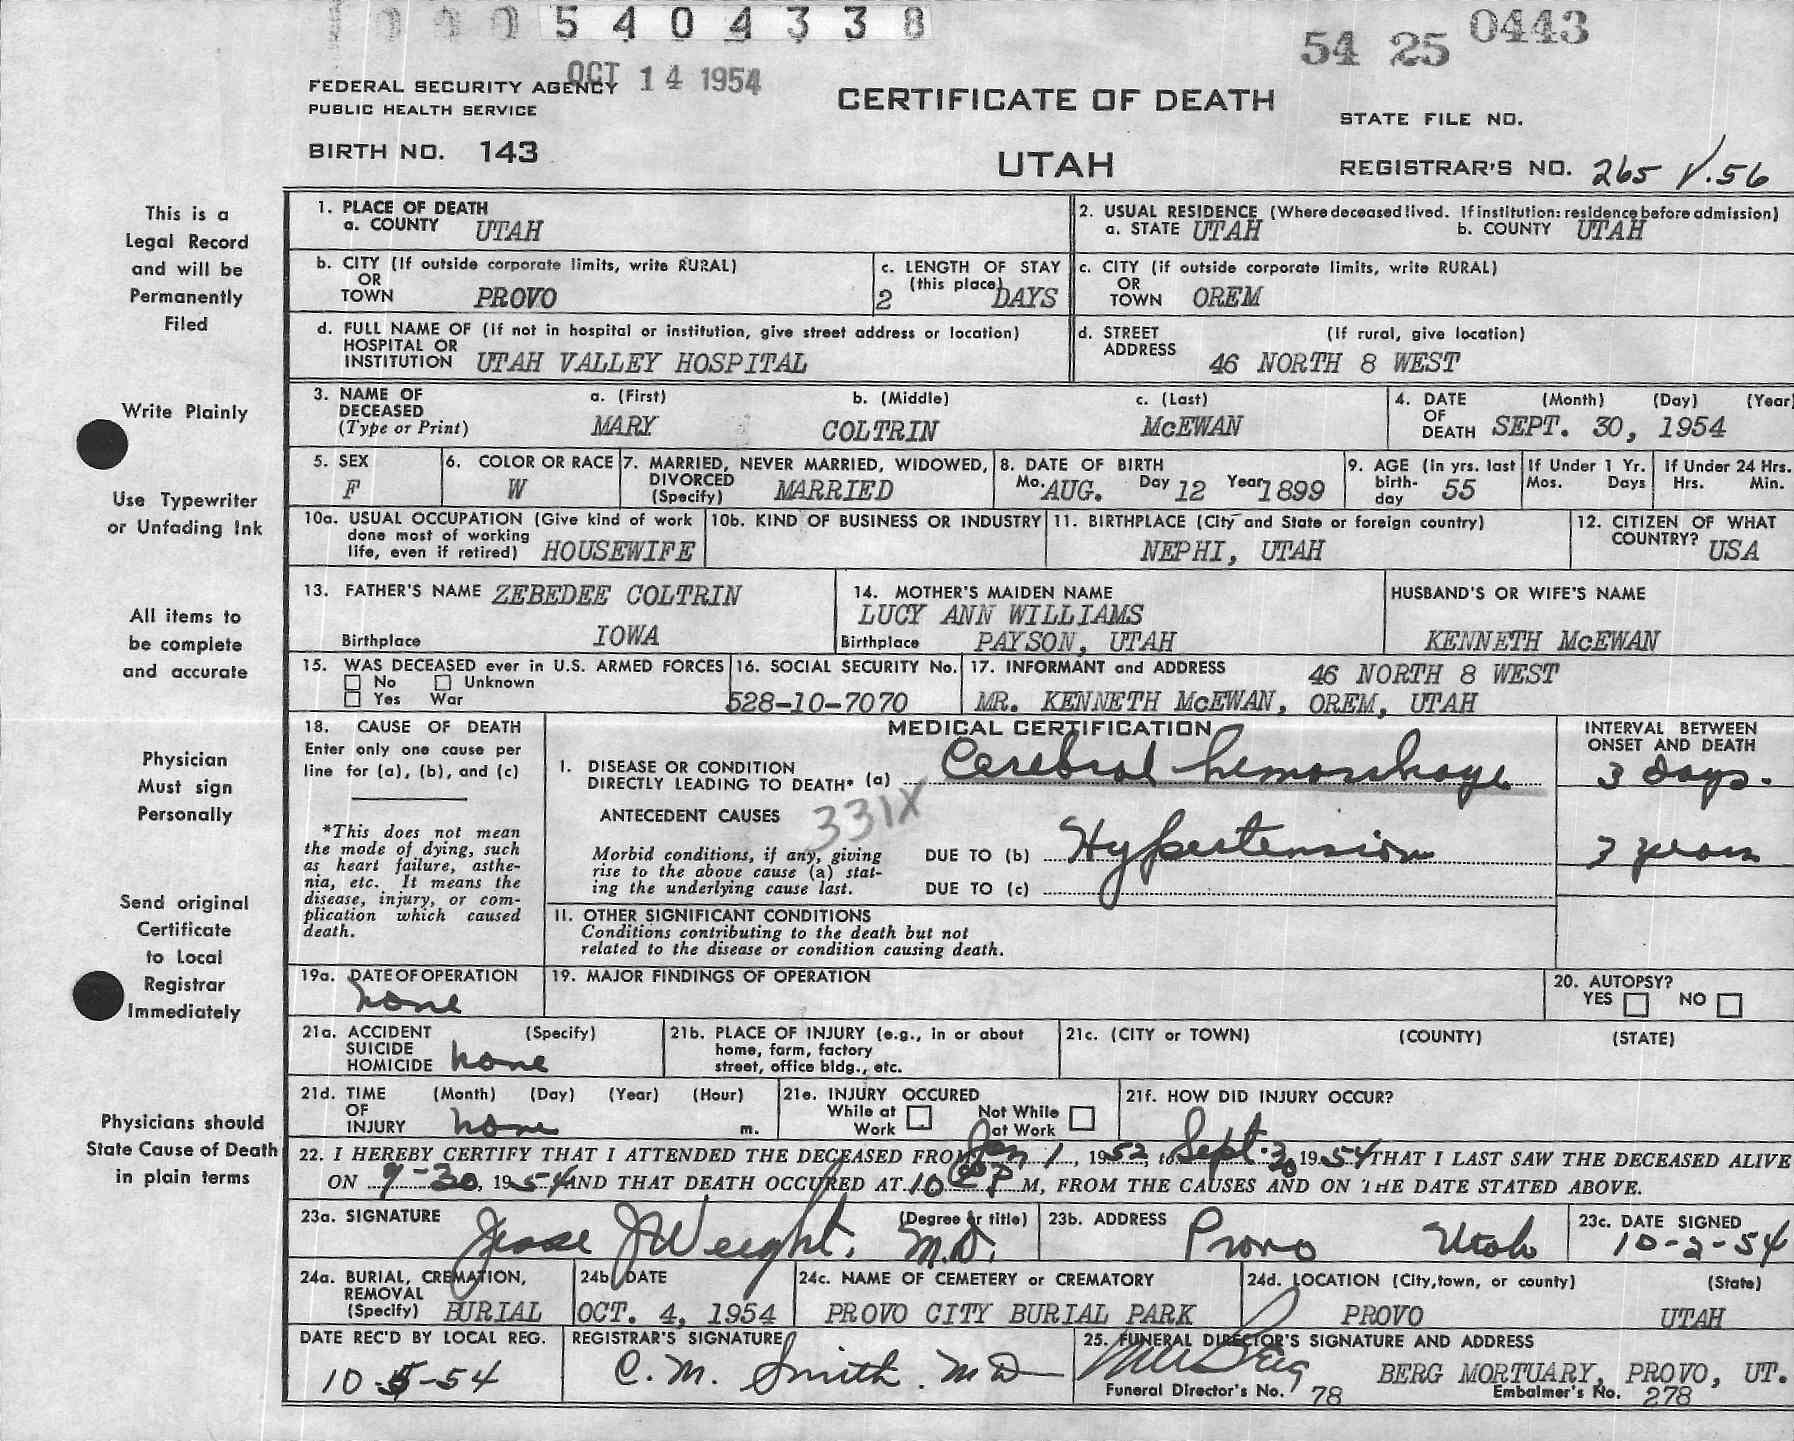 5 4 0 4 3 3 8
54 25 0443
OCT 14 1954
FEDERAL SECURITY AGENCY
PUBLIC HEALTH SERVICE
CERTIFICATE OF DEATH
STATE FILE NO.
BIRTH NO. 143
UTAH
REGISTRAR'S NO. 265 V.56
This is a
Legal Record
and will be
Permanently
Filed
Write Plainly
Use Typewriter
or Unfading Ink
All items to
be complete
and accurate
Physician
Must sign
Personally
Send original
Certificate
to Local
Registrar
Immediately
Physicians should
State Cause of Death
in plain terms
1. PLACE OF DEATH
a. COUNTY UTAH
2. USUAL RESIDENCE (Where deceased lived. If institution: residence before admission)
a. STATE UTAH b. COUNTY UTAH
b. CITY (If outside corporate limits, write RURAL)
OR
TOWN PROVO
c. LENGTH OF STAY
(this place)
2 DAYS
c. CITY (if outside corporate limits, write RURAL)
OR
TOWN OREM
d. FULL NAME OF (If not in hospital or institution, give street address or location)
HOSPITAL OR
INSTITUTION UTAH VALLEY HOSPITAL
d. STREET (If rural, give location)
ADDRESS
46 NORTH 8 WEST
3. NAME OF
DECEASED
(Type or Print)
a. (First) b. (Middle) c. (Last)
MARY COLTRIN McEWAN
4. DATE (Month) (Day) (Year)
OF
DEATH SEPT. 30, 1954
5. SEX
F
6. COLOR OR RACE
W
7. MARRIED, NEVER MARRIED, WIDOWED,
DIVORCED
(Specify) MARRIED
8. DATE OF BIRTH
Mo. AUG. Day 12 Year 1899
9. AGE (In yrs. last
birth-
day 55
If Under 1 Yr.
Mos. Days
If Under 24 Hrs.
Hrs. Min.
10a. USUAL OCCUPATION (Give kind of work
done most of working
life, even if retired) HOUSEWIFE
10b. KIND OF BUSINESS OR INDUSTRY
11. BIRTHPLACE (City and State or foreign country)
NEPHI, UTAH
12. CITIZEN OF WHAT
COUNTRY? USA
13. FATHER'S NAME ZEBEDEE COLTRIN
Birthplace IOWA
14. MOTHER'S MAIDEN NAME
LUCY ANN WILLIAMS
Birthplace PAYSON, UTAH
HUSBAND'S OR WIFE'S NAME
KENNETH McEWAN
15. WAS DECEASED ever in U.S. ARMED FORCES
No Unknown
Yes War
16. SOCIAL SECURITY No.
528-10-7070
17. INFORMANT and ADDRESS 46 NORTH 8 WEST
MR. KENNETH McEWAN, OREM, UTAH
18. CAUSE OF DEATH
Enter only one cause per
line for (a), (b), and (c)
*This does not mean
the mode of dying, such
as heart failure, asthe-
nia, etc. It means the
disease, injury, or com-
plication which caused
death.
MEDICAL CERTIFICATION
I. DISEASE OR CONDITION
DIRECTLY LEADING TO DEATH* (a) Cerebral hemorrhage
ANTECEDENT CAUSES 331X
Morbid conditions, if any, giving
rise to the above cause (a) stat-
ing the underlying cause last.
DUE TO (b) Hypertension
DUE TO (c)
INTERVAL BETWEEN
ONSET AND DEATH
3 Days.
years
II. OTHER SIGNIFICANT CONDITIONS
Conditions contributing to the death but not
related to the disease or condition causing death.
19a. DATE OF OPERATION
none
19. MAJOR FINDINGS OF OPERATION
20. AUTOPSY?
YES NO
21a. ACCIDENT (Specify)
SUICIDE
HOMICIDE none
21b. PLACE OF INJURY (e.g., in or about
home, farm, factory
street, office bldg., etc.
21c. (CITY or TOWN) (COUNTY) (STATE)
21d. TIME (Month) (Day) (Year) (Hour)
OF
INJURY none m.
21e. INJURY OCCURED
While at Work Not While at Work
21f. HOW DID INJURY OCCUR?
22. I HEREBY CERTIFY THAT I ATTENDED THE DECEASED FROM Jan 1, 1952, to Sept. 30 1954 THAT I LAST SAW THE DECEASED ALIVE
ON 9-30, 1954 AND THAT DEATH OCCURED AT 10 P M, FROM THE CAUSES AND ON THE DATE STATED ABOVE.
23a. SIGNATURE (Degree or title)
Jesse J Weight. M.D.
23b. ADDRESS Provo Utah
23c. DATE SIGNED
10-2-54
24a. BURIAL, CREMATION,
REMOVAL
(Specify) BURIAL
24b. DATE
OCT. 4, 1954
24c. NAME OF CEMETERY or CREMATORY
PROVO CITY BURIAL PARK
24d. LOCATION (City, town, or county) (State)
PROVO UTAH
DATE REC'D BY LOCAL REG.
10-5-54
REGISTRAR'S SIGNATURE
C. M. Smith. MD
25. FUNERAL DIRECTOR'S SIGNATURE AND ADDRESS
Berg BERG MORTUARY, PROVO, UT.
Funeral Director's No. 78 Embalmer's No. 278